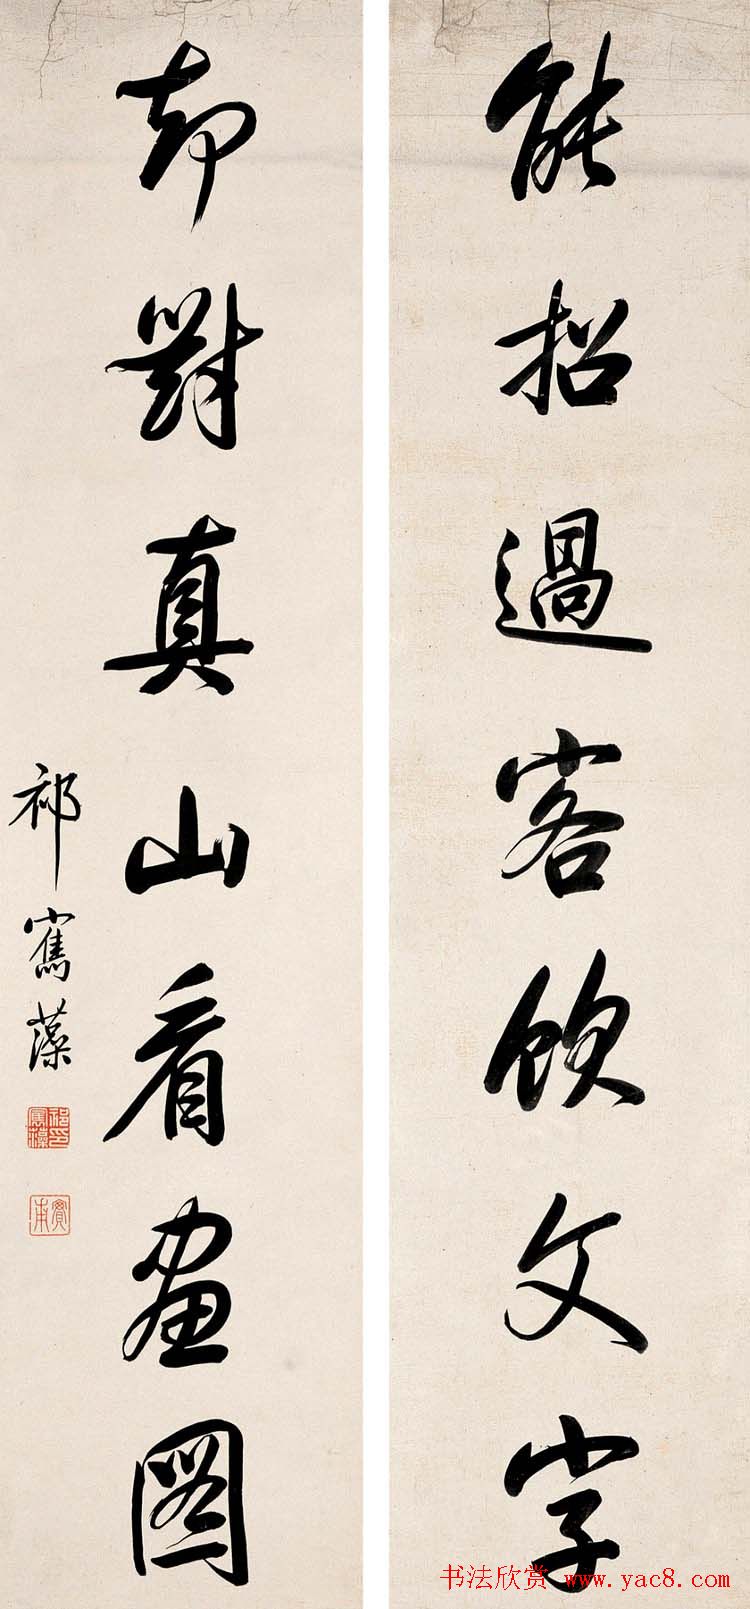 能招過客飲文字
却對真山看畫圖
祁寯藻
祁寯藻印
實甫
书法欣赏 www.yac8.com